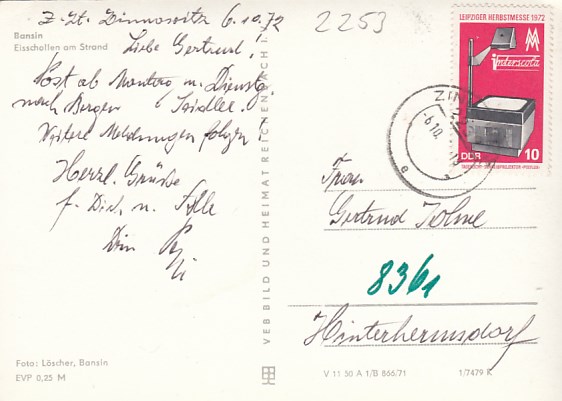 2253
z. Zt. Zinnowitz 6.10.72
Bansin
Eisschollen am Strand
Liebe Gertrud,
Post ab Montag u. Dienstg
nach Bergen
Weitere Meldungen folgen!
Herzl. Grüße
f. Dich u. Alle
Dein
Foto: Löscher, Bansin
EVP 0,25 M
VEB BILD UND HEIMAT REICHENBACH i. V.
LEIPZIGER HERBSTMESSE 1972
MM
interscola
DDR 10
ZINN
6.10.
Frau
Gertrud
8361
Hinterhermsdorf
V 11 50 A 1/B 866/71
1/7479 K